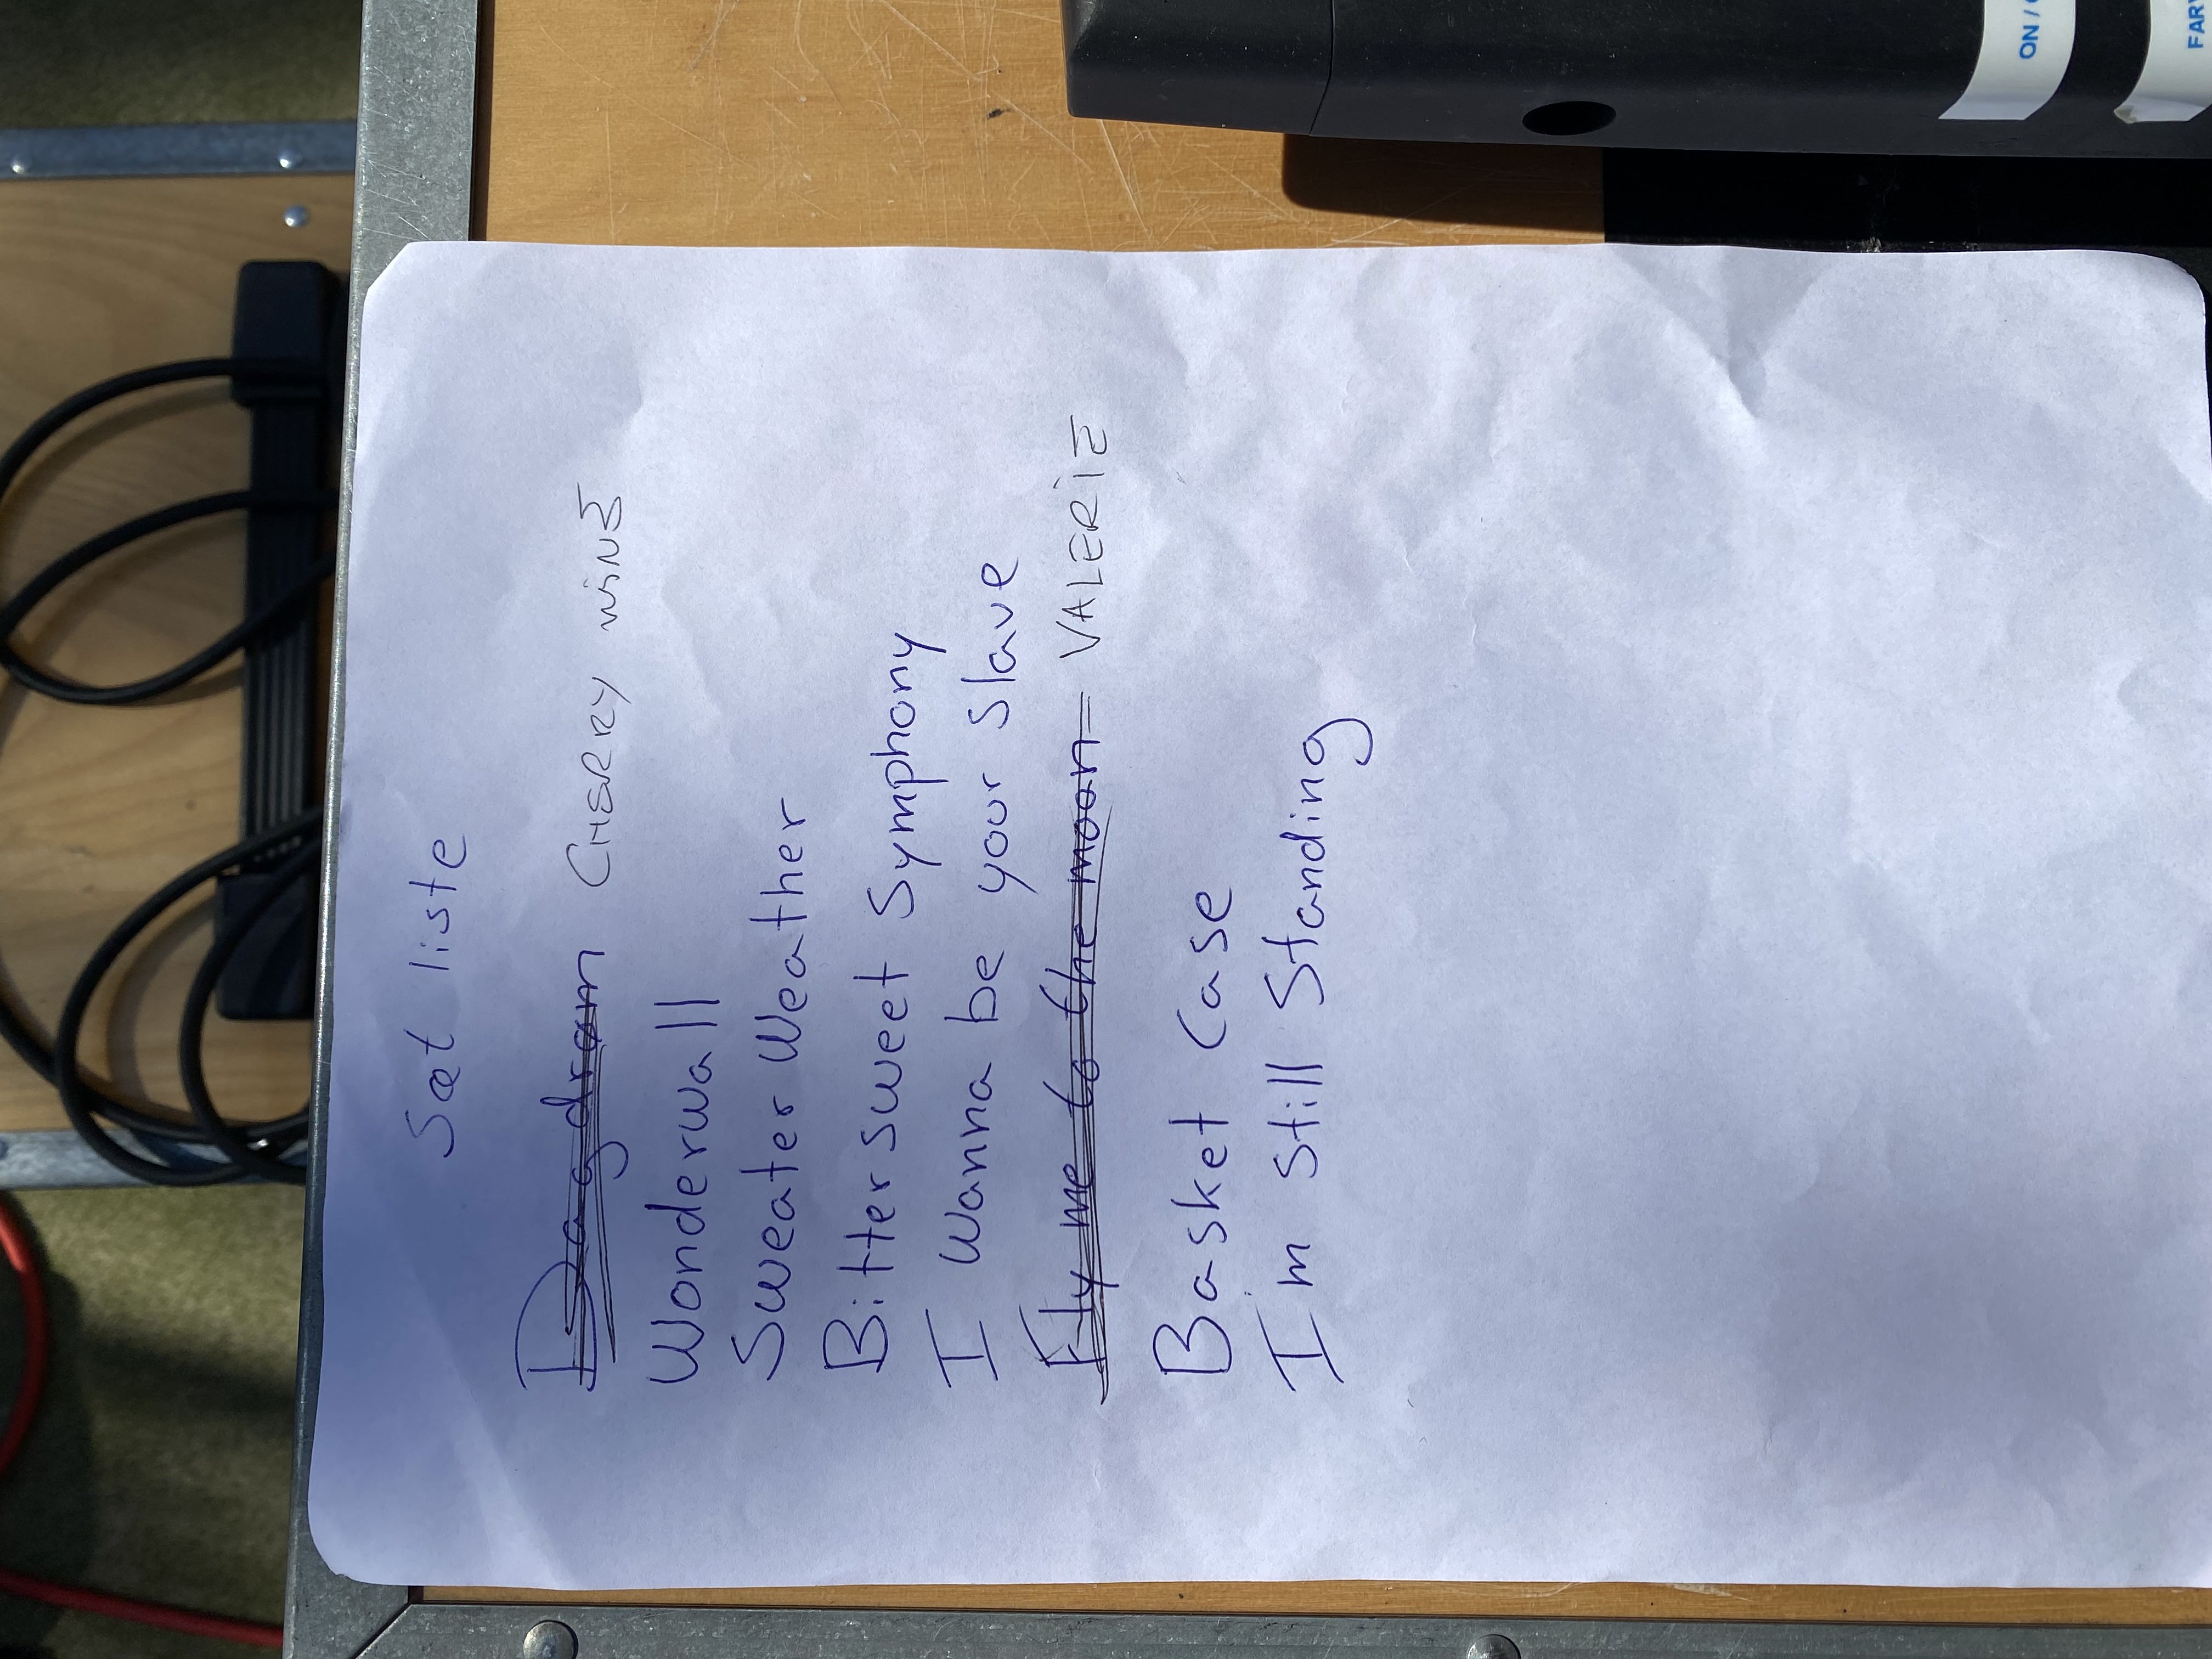 Sæt liste
Dagdrøm CHERRY WINE
Wonderwall
Sweater Weather
Bittersweet Symphony
I Wanna be your Slave
Fly me to the moon = VALERIE
Basket Case
Im Still Standing
ON /
FARV